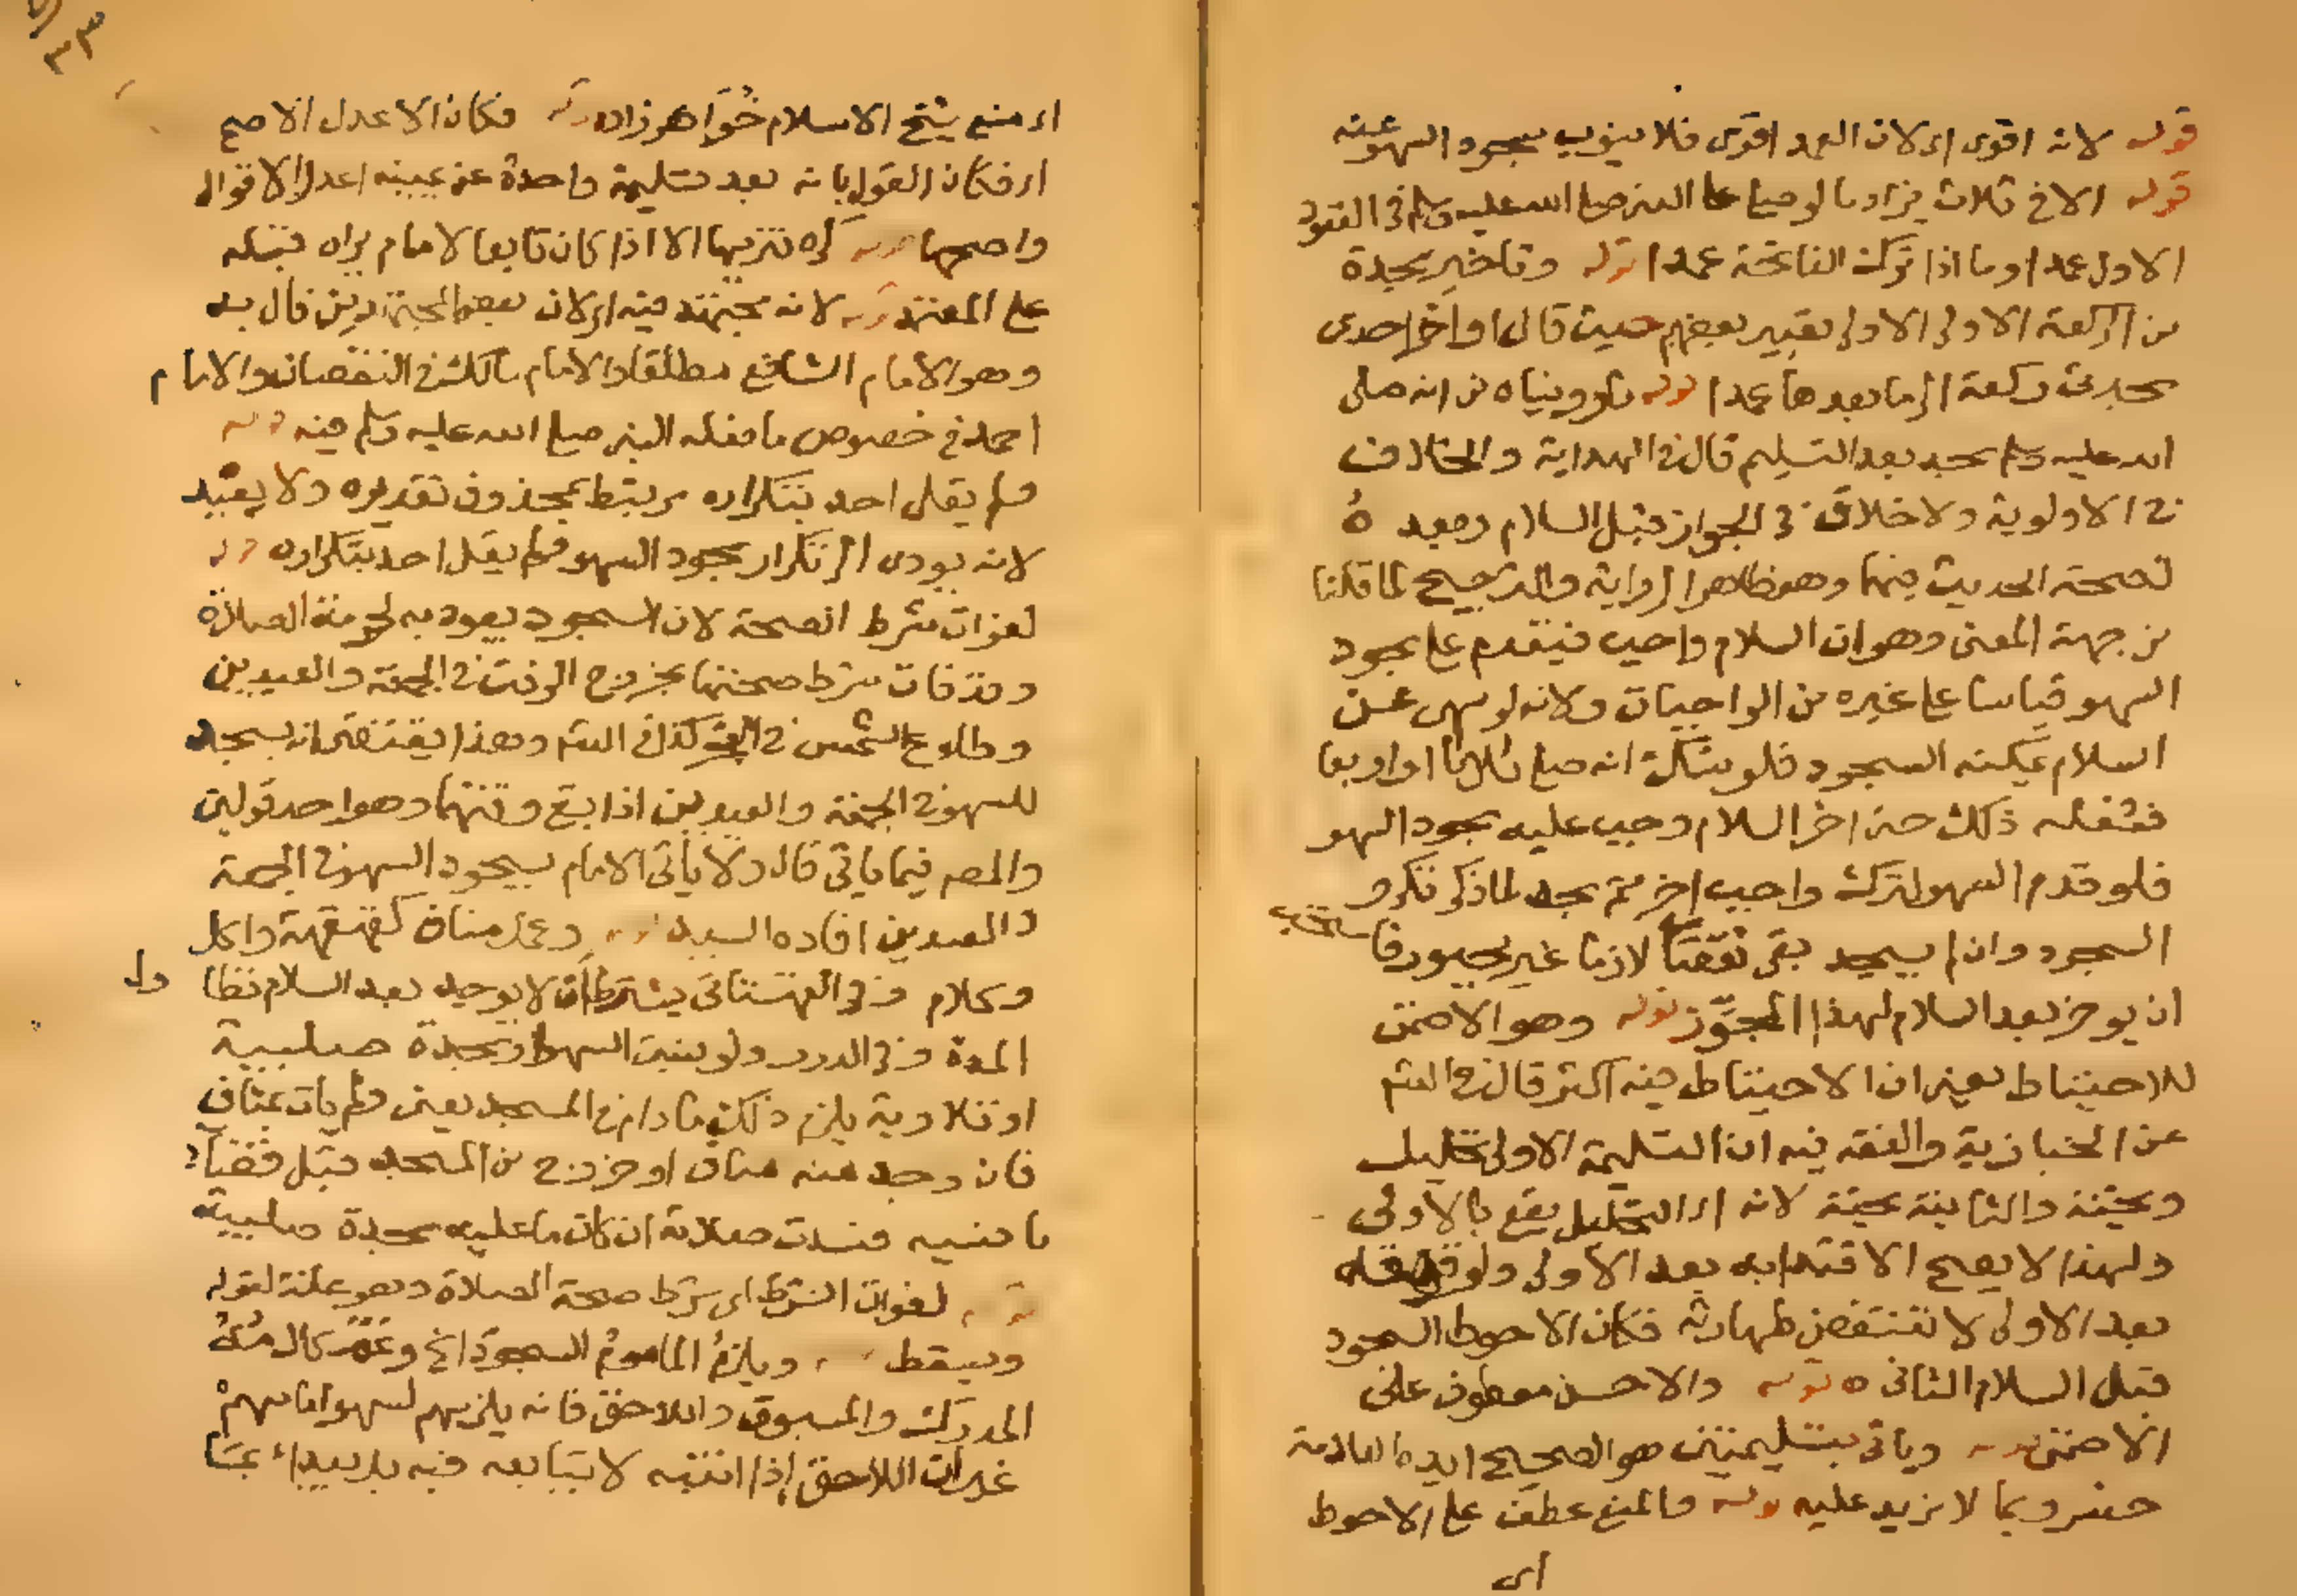 قوله لانه اقوى اى لان العمد اقوى فلا ينوب سجود السهو عنه
قوله الا فى ثلاث يزاد ما لو صلى على النبى صلى الله عليه وسلم فى القعود
الاول عمدا وما اذا ترك الفاتحة عمدا قوله وتاخير سجدة
من الركعة الاولى الاولى تعبير بعضهم حيث قال او اخر احدى
سجدتى ركعة الى ما بعدها عمدا قوله لما روينا من انه صلى
الله عليه وسلم سجد بعد التسليم قال فى الهداية والخلاف
فى الاولوية ولا خلاف فى الجواز قبل السلام وبعده
لصحة الحديث فيهما وهو ظاهر الرواية والترجيح لما قلنا
من جهة المعنى وهو ان السلام واجب فيتقدم على سجود
السهو قياسا على غيره من الواجبات ولانه لو سهى عن
السلام يمكنه السجود فلو شك انه صلى ثلاثا او اربعا
فشغله ذلك حتى اخر السلام وجب عليه سجود السهو
فلو قدم السهو لترك واجب اخر ثم سجد لما ذكر تكرر
السجود وان لم يسجد بقى نقصا لازما غير مجبور فاستحب
ان يوخر بعد السلام لهذا المجوز قوله وهو الاصح
للاحتياط يعنى ان الاحتياط فيه اكثر قال فى الشرح
عن الخبازية والفقه فيه ان التسليمة الاولى تحليل
وتحية والثانية تحية لانه اى التحليل يقع بالاولى
ولهذا لا يصح الاقتدا به بعد الاولى ولو قهقه
بعد الاولى لا تنتقض طهارته فكان الاحوط السجود
قبل السلام الثانى ه قوله والاحسن معطوف على
الاصح قوله وياتى بتسليمتين هو الصحيح ايده العلامة
خسرو بما لا مزيد عليه قوله والمنع عطف على الاحوط
اى
اى منع شيخ الاسلام خُوَاهر زاده قوله فكان الاعدل الاصح
اى فكان القول بانه بعد تسليمة واحدة عن يمينه اعدل الاقوال
واصحها قوله كره تنزيها الا اذا كان تابعا لامام يراه قبله
على المعتمد قوله لانه مجتهد فيه اى لان بعض المجتهدين قال به
وهو الامام الشافعى مطلقا والامام مالك فى النقصان والامام
احمد فى خصوص ما فعله النبى صلى الله عليه وسلم فيه قوله
ولم يقل احد بتكراره مرتبط بمحذوف تقديره ولا يعيد
لانه يودى الى تكرار سجود السهو ولم يقل احد بتكراره قوله
لفوات شرط الصحة لان السجود يعود به لحرمة الصلاة
وقد فات شرط صحتها بخروج الوقت فى الجمعة والعيدين
وطلوع الشمس فى الفجر كذا فى الشرح وهذا يقتضى انه يسجد
للسهو فى الجمعة والعيدين اذا بقى وقتهما وهو احد قولين
والمصه فيما ياتى قال ولا ياتى الامام بسجود السهو فى الجمعة
والعيدين افاده السيد قوله وعمل مناف كقهقهة واكل
وكلام وفى القهستانى يشترط ان لا يوجد بعد السلام تطاول
المدة وفى الدرر ولو نسى السهو او سجدة صلبية
او تلاوية يلزم ذلك ما دام فى المسجد يعنى ولم يات بمناف
فان وجد منه مناف او خروج من المسجد قبل قضاء
ما نسيه فسدت صلاته ان كان ما عليه سجدة صلبية
قوله لفوات الشرط اى شرط صحة الصلاة وهو علة لقوله
ويسقط قوله ويلزمُ الماموم السجود الخ
المدرك والمسبوق واللاحق فانه يلزمهم لسهو امامهم
غير ان اللاحق اذا انتبه لا يتابعه فيه بل يبداء بقضاء